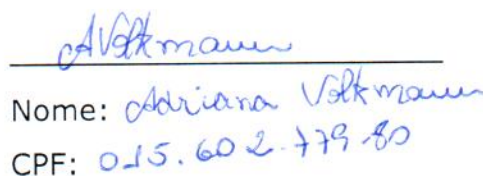 AVolkmann
Nome: Adriana Volkmann
CPF: 015.602.779-80